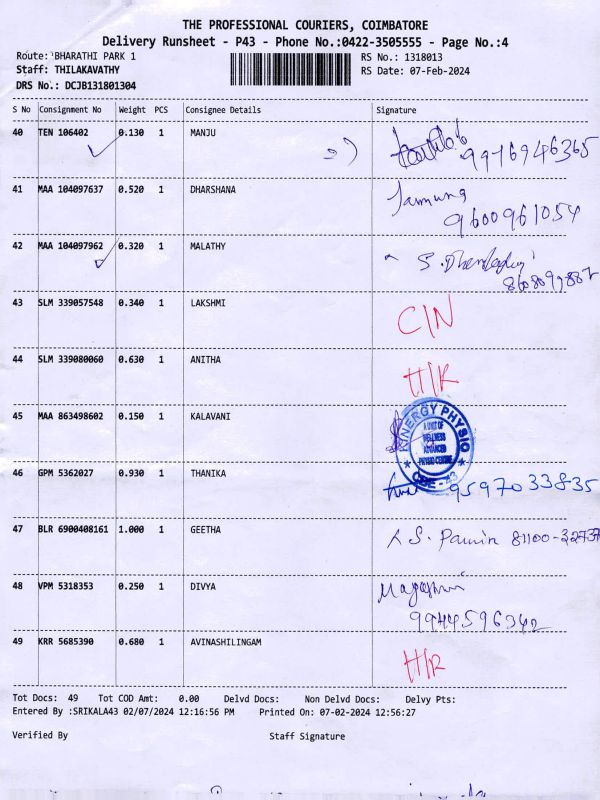 THE PROFESSIONAL COURIERS, COIMBATORE
Delivery Runsheet - P43 - Phone No.:0422-3505555 - Page No.:4
Route: BHARATHI PARK 1 RS No.: 1318013
Staff: THILAKAVATHY RS Date: 07-Feb-2024
DRS No.: DCJB131801304
S No Consignment No Weight PCS Consignee Details Signature
40 TEN 106402 0.130 1 MANJU
9976946365
41 MAA 104097637 0.520 1 DHARSHANA Jamuna
9600961054
42 MAA 104097962 0.320 1 MALATHY
43 SLM 339057548 0.340 1 LAKSHMI C/N
44 SLM 339080060 0.630 1 ANITHA H/R
45 MAA 863498602 0.150 1 KALAVANI
A UNIT OF
WELLNESS
ADVANCED
PHYSIO CENTRE
46 GPM 5362027 0.930 1 THANIKA 9597033835
47 BLR 6900408161 1.000 1 GEETHA
48 VPM 5318353 0.250 1 DIVYA
9944596342
49 KRR 5685390 0.680 1 AVINASHILINGAM H/R
Tot Docs: 49 Tot COD Amt: 0.00 Delvd Docs: Non Delvd Docs: Delvy Pts:
Entered By :SRIKALA43 02/07/2024 12:16:56 PM Printed On: 07-02-2024 12:56:27
Verified By Staff Signature